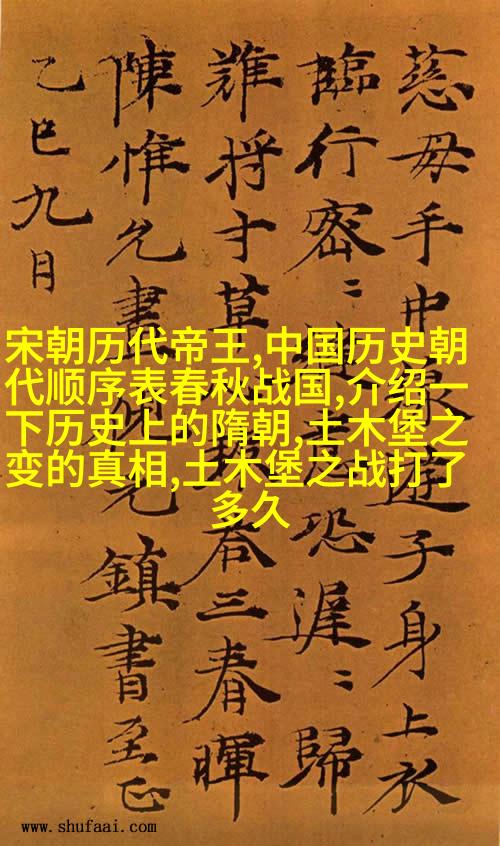 慈母手中線遊子身上衣
臨行密〻縫恐遲〻歸
難将寸草答三春暉
陳惟允書元鎮書至正
乙巳九月
宋朝历代帝王,中国历史朝
代顺序表春秋战国,介绍一
下历史上的隋朝,土木堡之
变的真相,土木堡之战打了
多久
www.shufaai.com